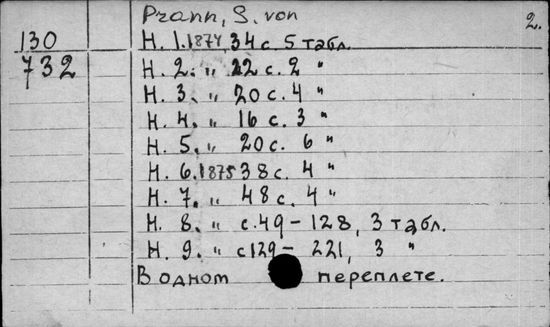 Pzann, S. von
2.
130
732
Н. 1. 1874, 34 с. 5 табл.
Н. 2. „ 22 с. 2 "
Н. 3. „ 20 с. 4 "
Н. 4. „ 16 с. 3 "
Н. 5. „ 20 с. 6 "
Н. 6. 1875 38 с. 4 "
Н. 7. „ 48 с. 4 "
Н. 8. „ с. 49 – 128, 3 табл.
Н. 9. „ с 129 – 221, 3 "
В одном переплете.